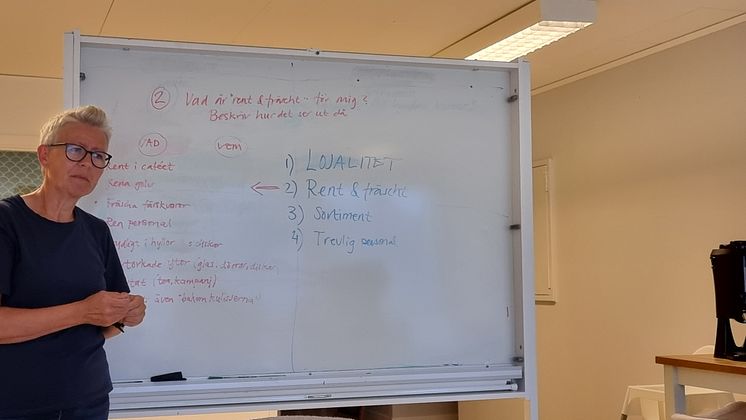 ② Vad är "rent & fräscht" för mig?
Beskriv hur det ser ut då
VAD
vem
Rent i caféet
Rena golv
Fräscha färskvaror
Ren personal
i hyllor & diskar
torkade ytor (glas, dörrar, diskar
(tex, kampanj)
även "bakom kulisserna"
1) LOJALITET
2) Rent & fräscht
3) Sortiment
4) Trevlig personal